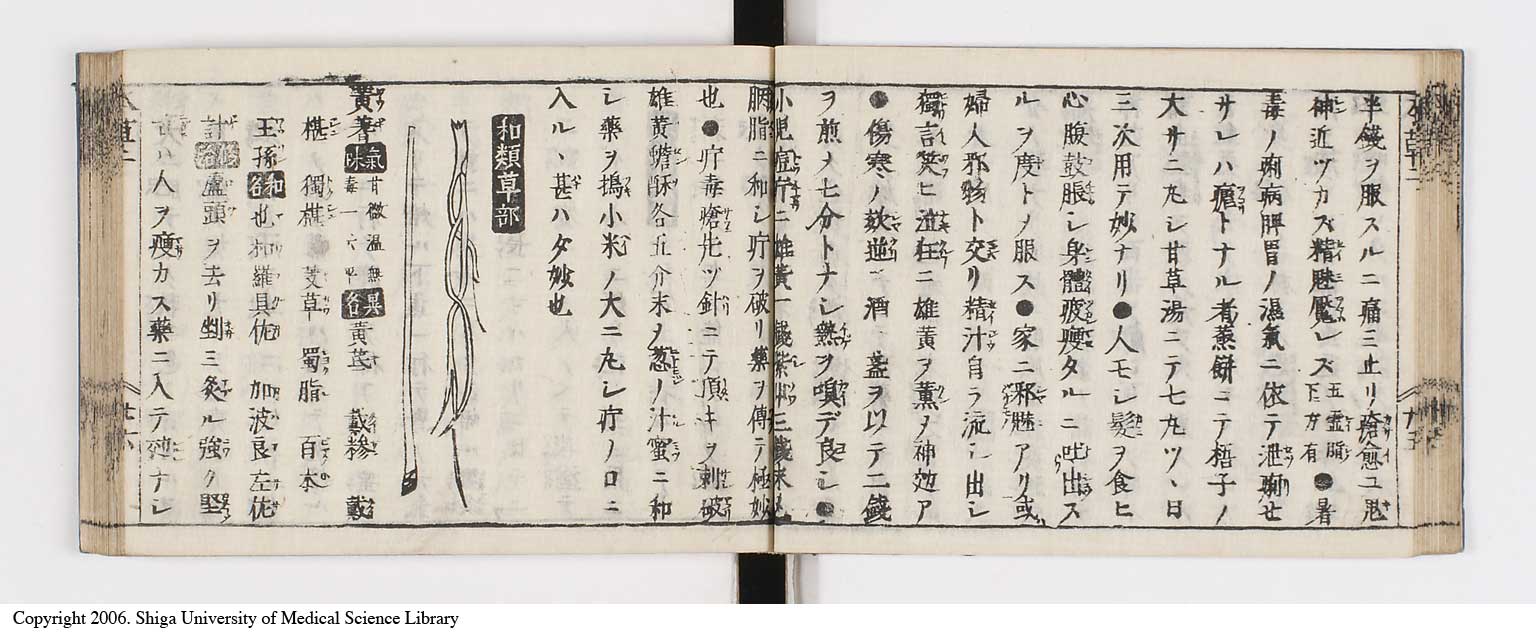 半錢ヲ服スルニ痛三止リ瘡愈ユ鬼
神近ツカズ精魅魘レズ 五霊脂下ニ方有 ●暑
毒ノ痢病脾胃ノ湿氣ニ依テ泄痢セ
サレハ瘧トナル者蒸餅ニテ梧子ノ
大サニ丸シ甘草湯ニテ七九ツヽ日
三次用テ妙ナリ●人モシ髪ヲ食ヒ
心腹鼓脹シ身體疲痩タルニ吐出ス
ルヲ度トメ服ス●家ニ邪魅アリ或
婦人邪物ト交リ精汁自ラ流シ出シ
獨言笑ヒ泣在ニ雄黄ヲ薫ヲ神効ア
●傷寒ノ欬逆ニ酒一盞ヲ以テ二錢
ヲ煎メ七分トナシ熱ヲ嗅デ良シ●
小児痘疔ニ雄黄一錢紫艸三錢末
胭脂ニ和シ疔ヲ破リ藥ヲ傅テ極妙
也●疔毒瘡先ツ針ニテ頂キヲ刺破
雄黄蟾酥各五介末ヲ葱ノ汁蜜ニ和
シ藥ヲ搗小米ノ大ニ丸シ疔ノ口ニ
入ルヽ甚ハタ妙也
和類草部
黄蓍 氣味 甘微温無毒 異名 黄茋 戴糝 戴
椹 獨椹 芰草 蜀脂 百本
王孫 和名 也和羅具佐 加波良左佐
計 蘆頭ヲ去リ 三灸ル強ク堅
ハ人ヲ痩カス藥ニ入テ効ナシ